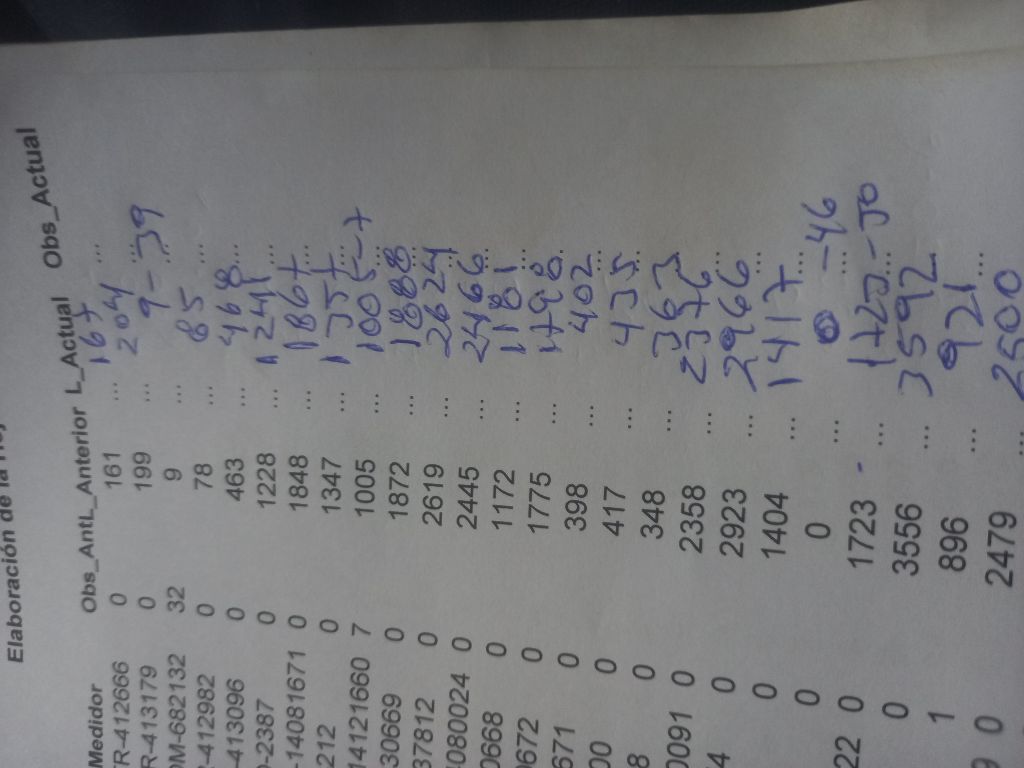 Elaboración de la
Medidor Obs_Ant L_Anterior L_Actual Obs_Actual
R-412666 0 161 ... 167 ...
R-413179 0 199 ... 204 ...
M-682132 32 9 ... 9 - 39 ...
-412982 0 78 ... 85 ...
-413096 0 463 ... 468 ...
-2387 0 1228 ... 1241 ...
-14081671 0 1848 ... 1867 ...
212 0 1347 ... 1357 ...
14121660 7 1005 ... 1005 - 7 ...
30669 0 1872 ... 1888 ...
37812 0 2619 ... 2624 ...
0800024 0 2445 ... 2466 ...
0668 0 1172 ... 1181 ...
0672 0 1775 ... 1798 ...
671 0 398 ... 402 ...
00 0 417 ... 435 ...
8 0 348 ... 363 ...
0091 0 2358 ... 2376 ...
4 0 2923 ... 2966 ...
0 1404 ... 1417 ...
0 0 ... 0 - 46 ...
22 0 1723 ... 1723 - 50 ...
0 3556 ... 3592
1 896 ... 921 ...
9 0 2479 ... 2500